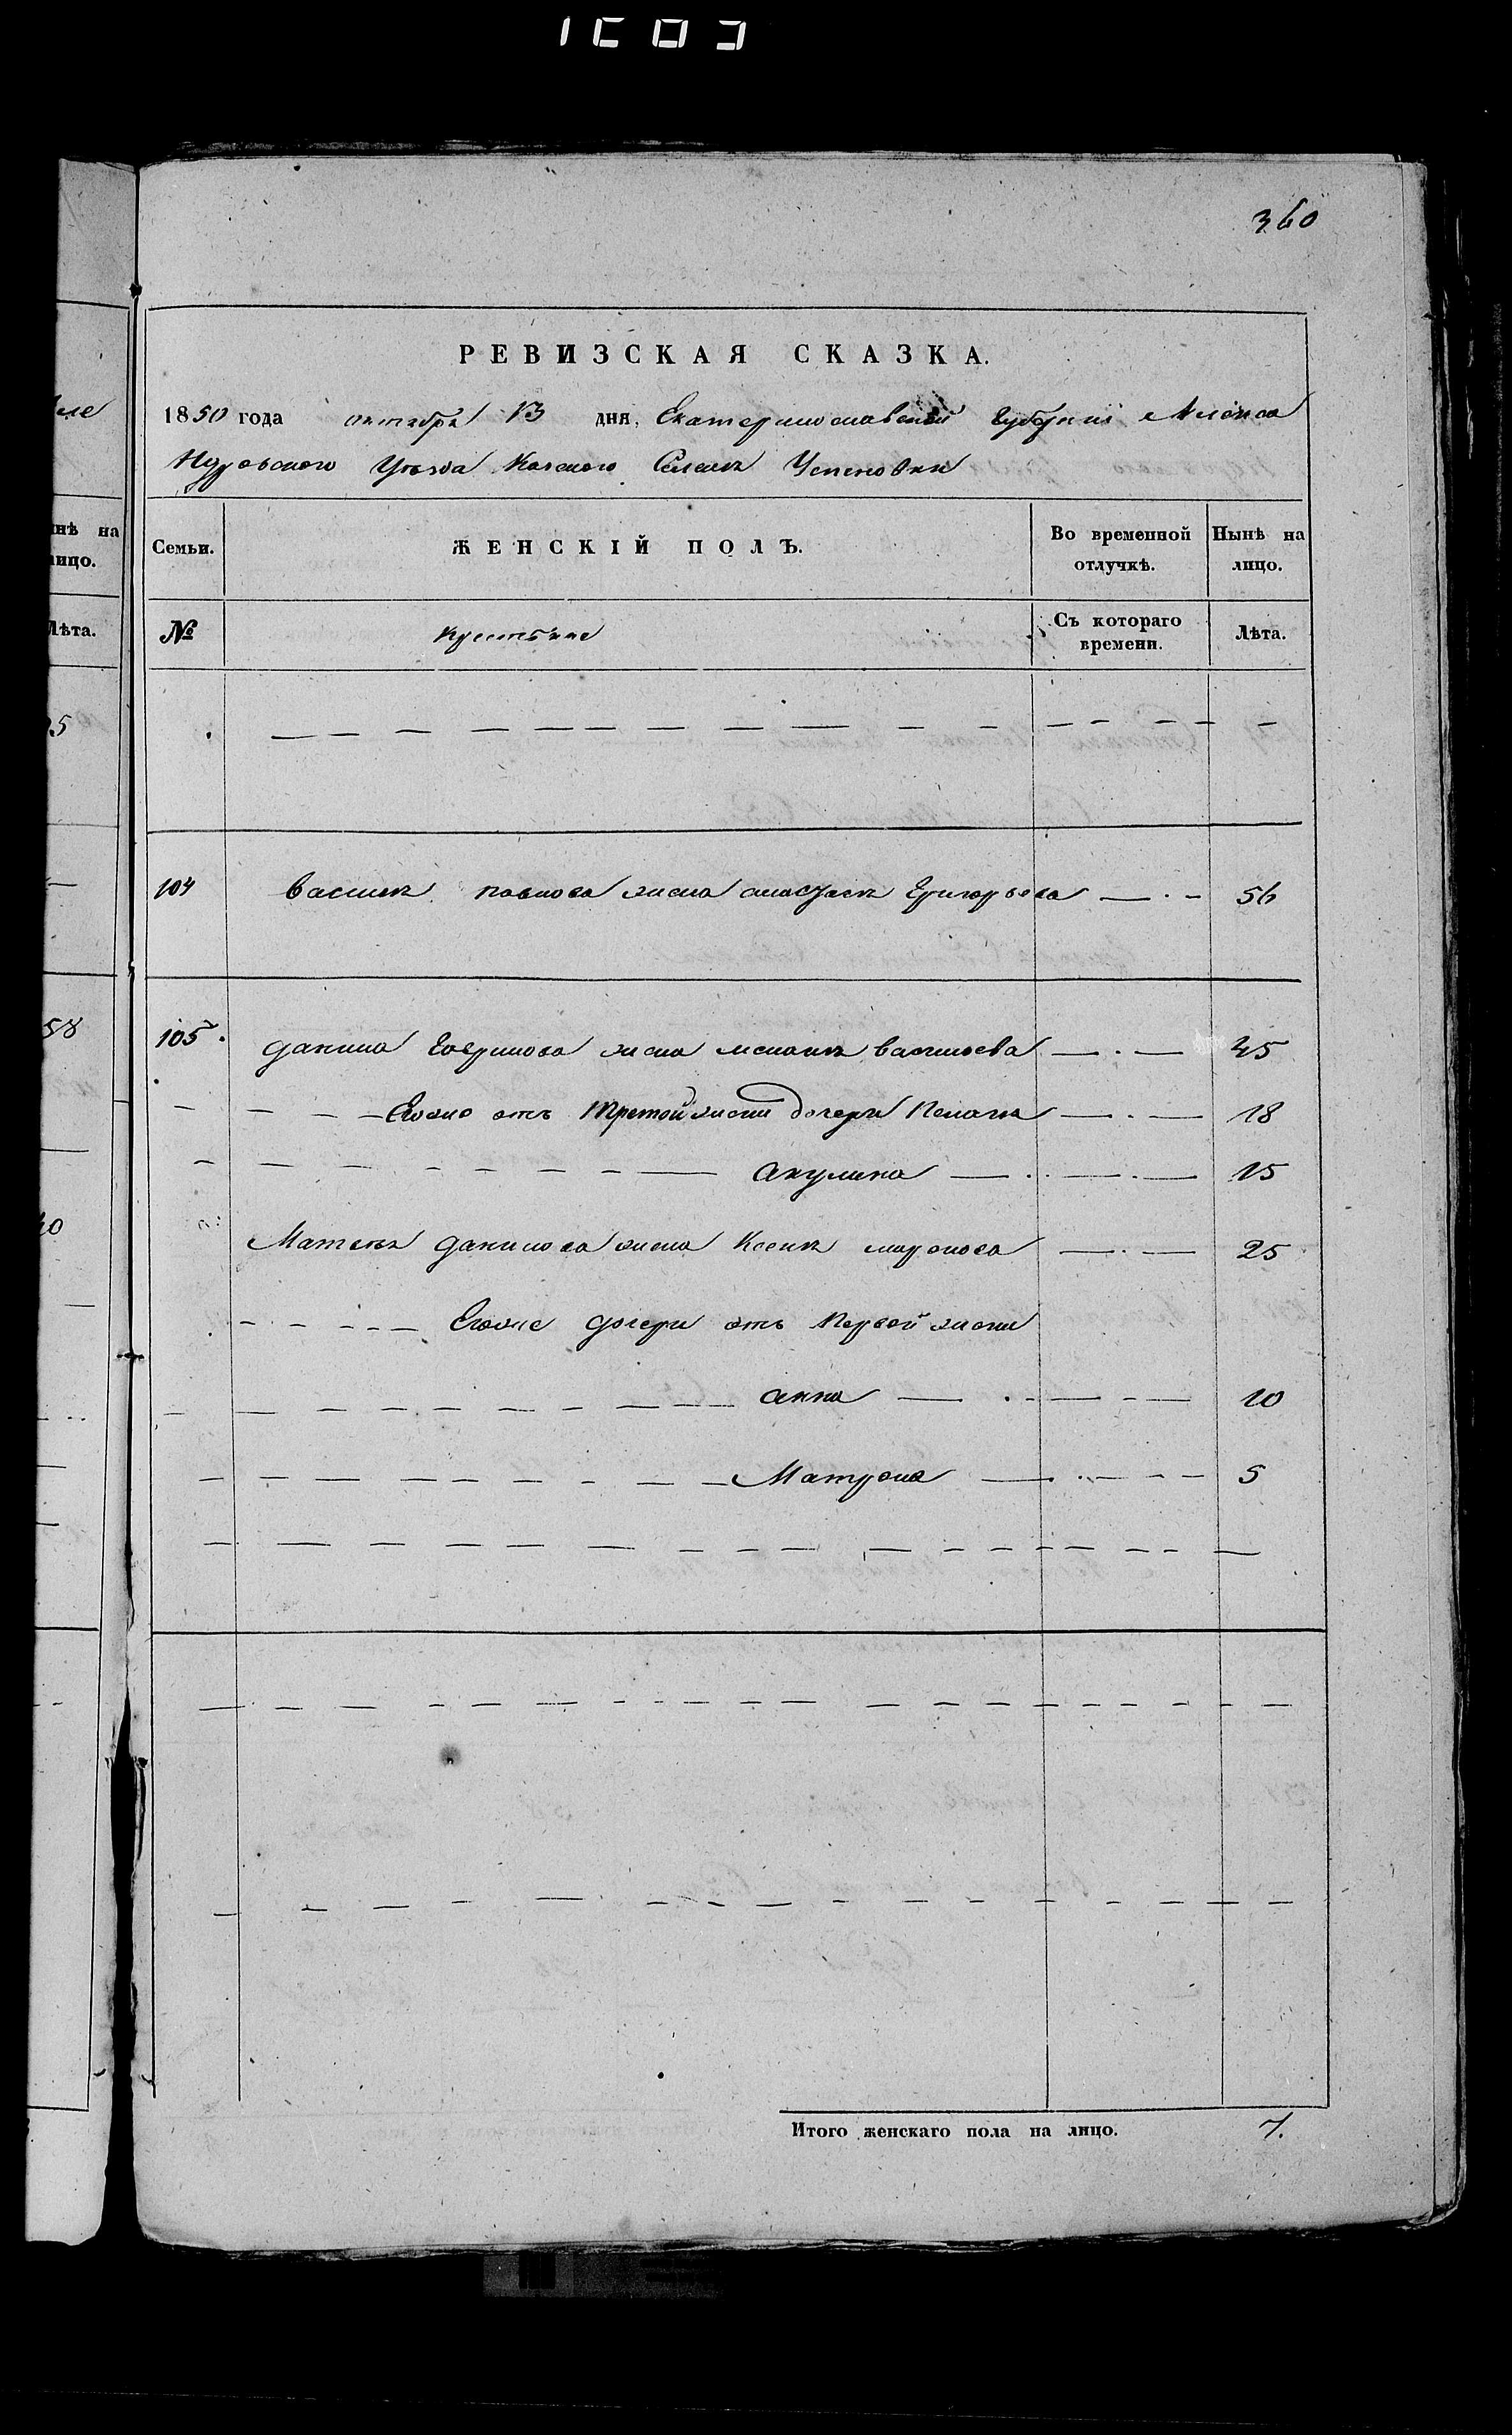 360
РЕВИЗСКАЯ СКАЗКА.
1850 года октября 13 дня, Екатеринославской Губернии Алекса
ндровского Уезда Казеного Селения Успеновки
Семьи. ЖЕНСКІЙ ПОЛЪ. Во временной отлучкѣ. Нынѣ на лицо.
№ Крестьяне Съ котораго времени. Лѣта.
104 Василия павлова жена анастасия Григорьева 56
105. данила Гаврилова жена мелания васильева 45
Егоже отъ Третой жени дочери Пелагия 18
акулина 15
Матвея данилова жена Ксения миронова 25
Егоже дочери отъ Первой жени
анна 10
Матрона 5
Итого женскаго пола на лицо. 7.
нѣ на
ицо.
Лѣта.
58